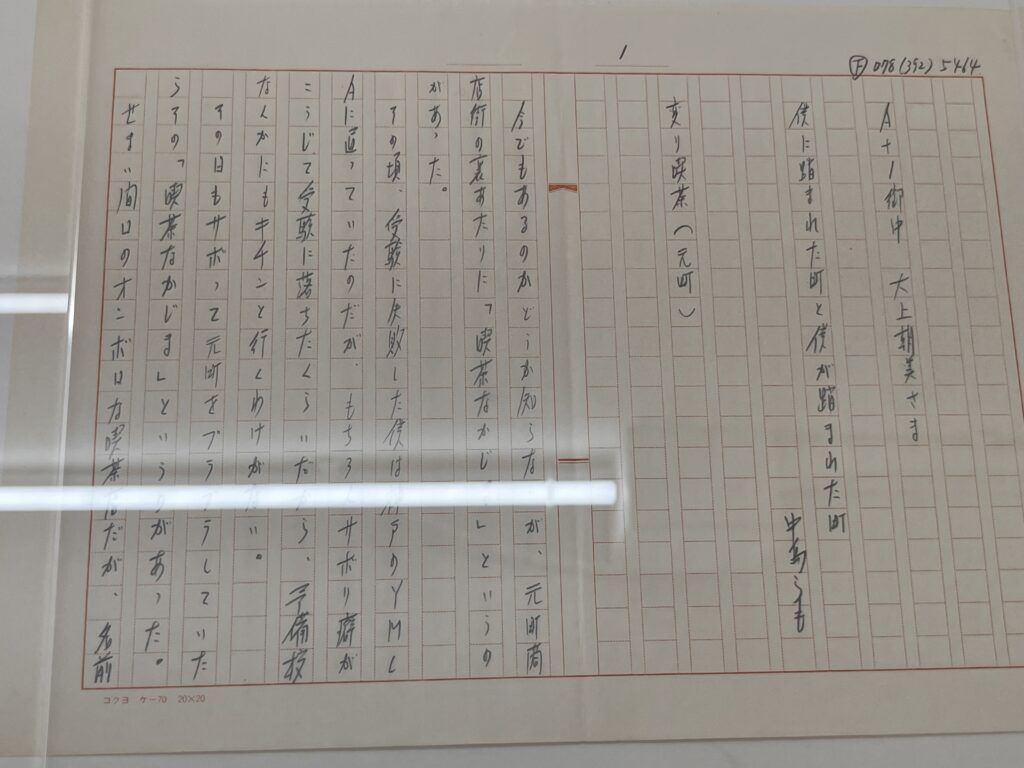 1
Ⓕ 078(392)5464
A+1御中 大上朝美さま
僕に踏まれた町と僕が踏まれた町
中島らも
変り喫茶(元町)
今でもあるのかどうか知らないが、元町商
店街の裏あたりに「喫茶なかじま」というの
があった。
その頃、受験に失敗した僕は神戸のYMC
Aに通っていたのだが、もちろんサボり癖が
こうじて受験に落ちたくらいだから、予備校
なんかにもキチンと行くわけがない。
その日もサボって元町をブラブラしていた
らその「喫茶なかじま」というのがあった。
せまい間口のオンボロな喫茶店だが、名前
コクヨ ケー70 20×20